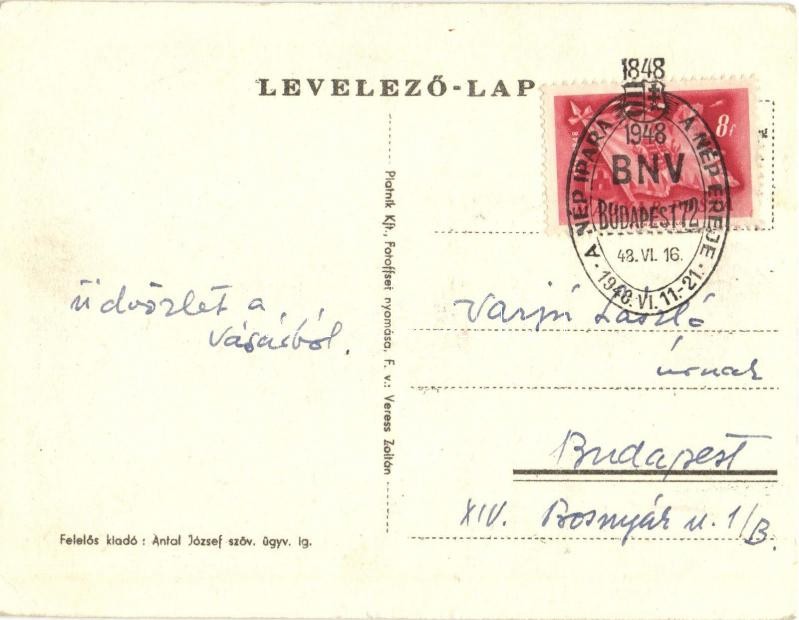 LEVELEZŐ-LAP
1848
1948
BNV
BUDAPEST 72
48. VI. 16.
A NÉP IPARA A NÉP EREJE
1948. VI. 11.-21.
8f
üdvözlet a
vásárból.
Piatnik Kft., Fotoffset nyomása, F. v.: Veress Zoltán
Varjú László
úrnak
Budapest
XIV. Bosnyák u. 1/B.
Felelős kiadó : Antal József szöv. ügyv. ig.